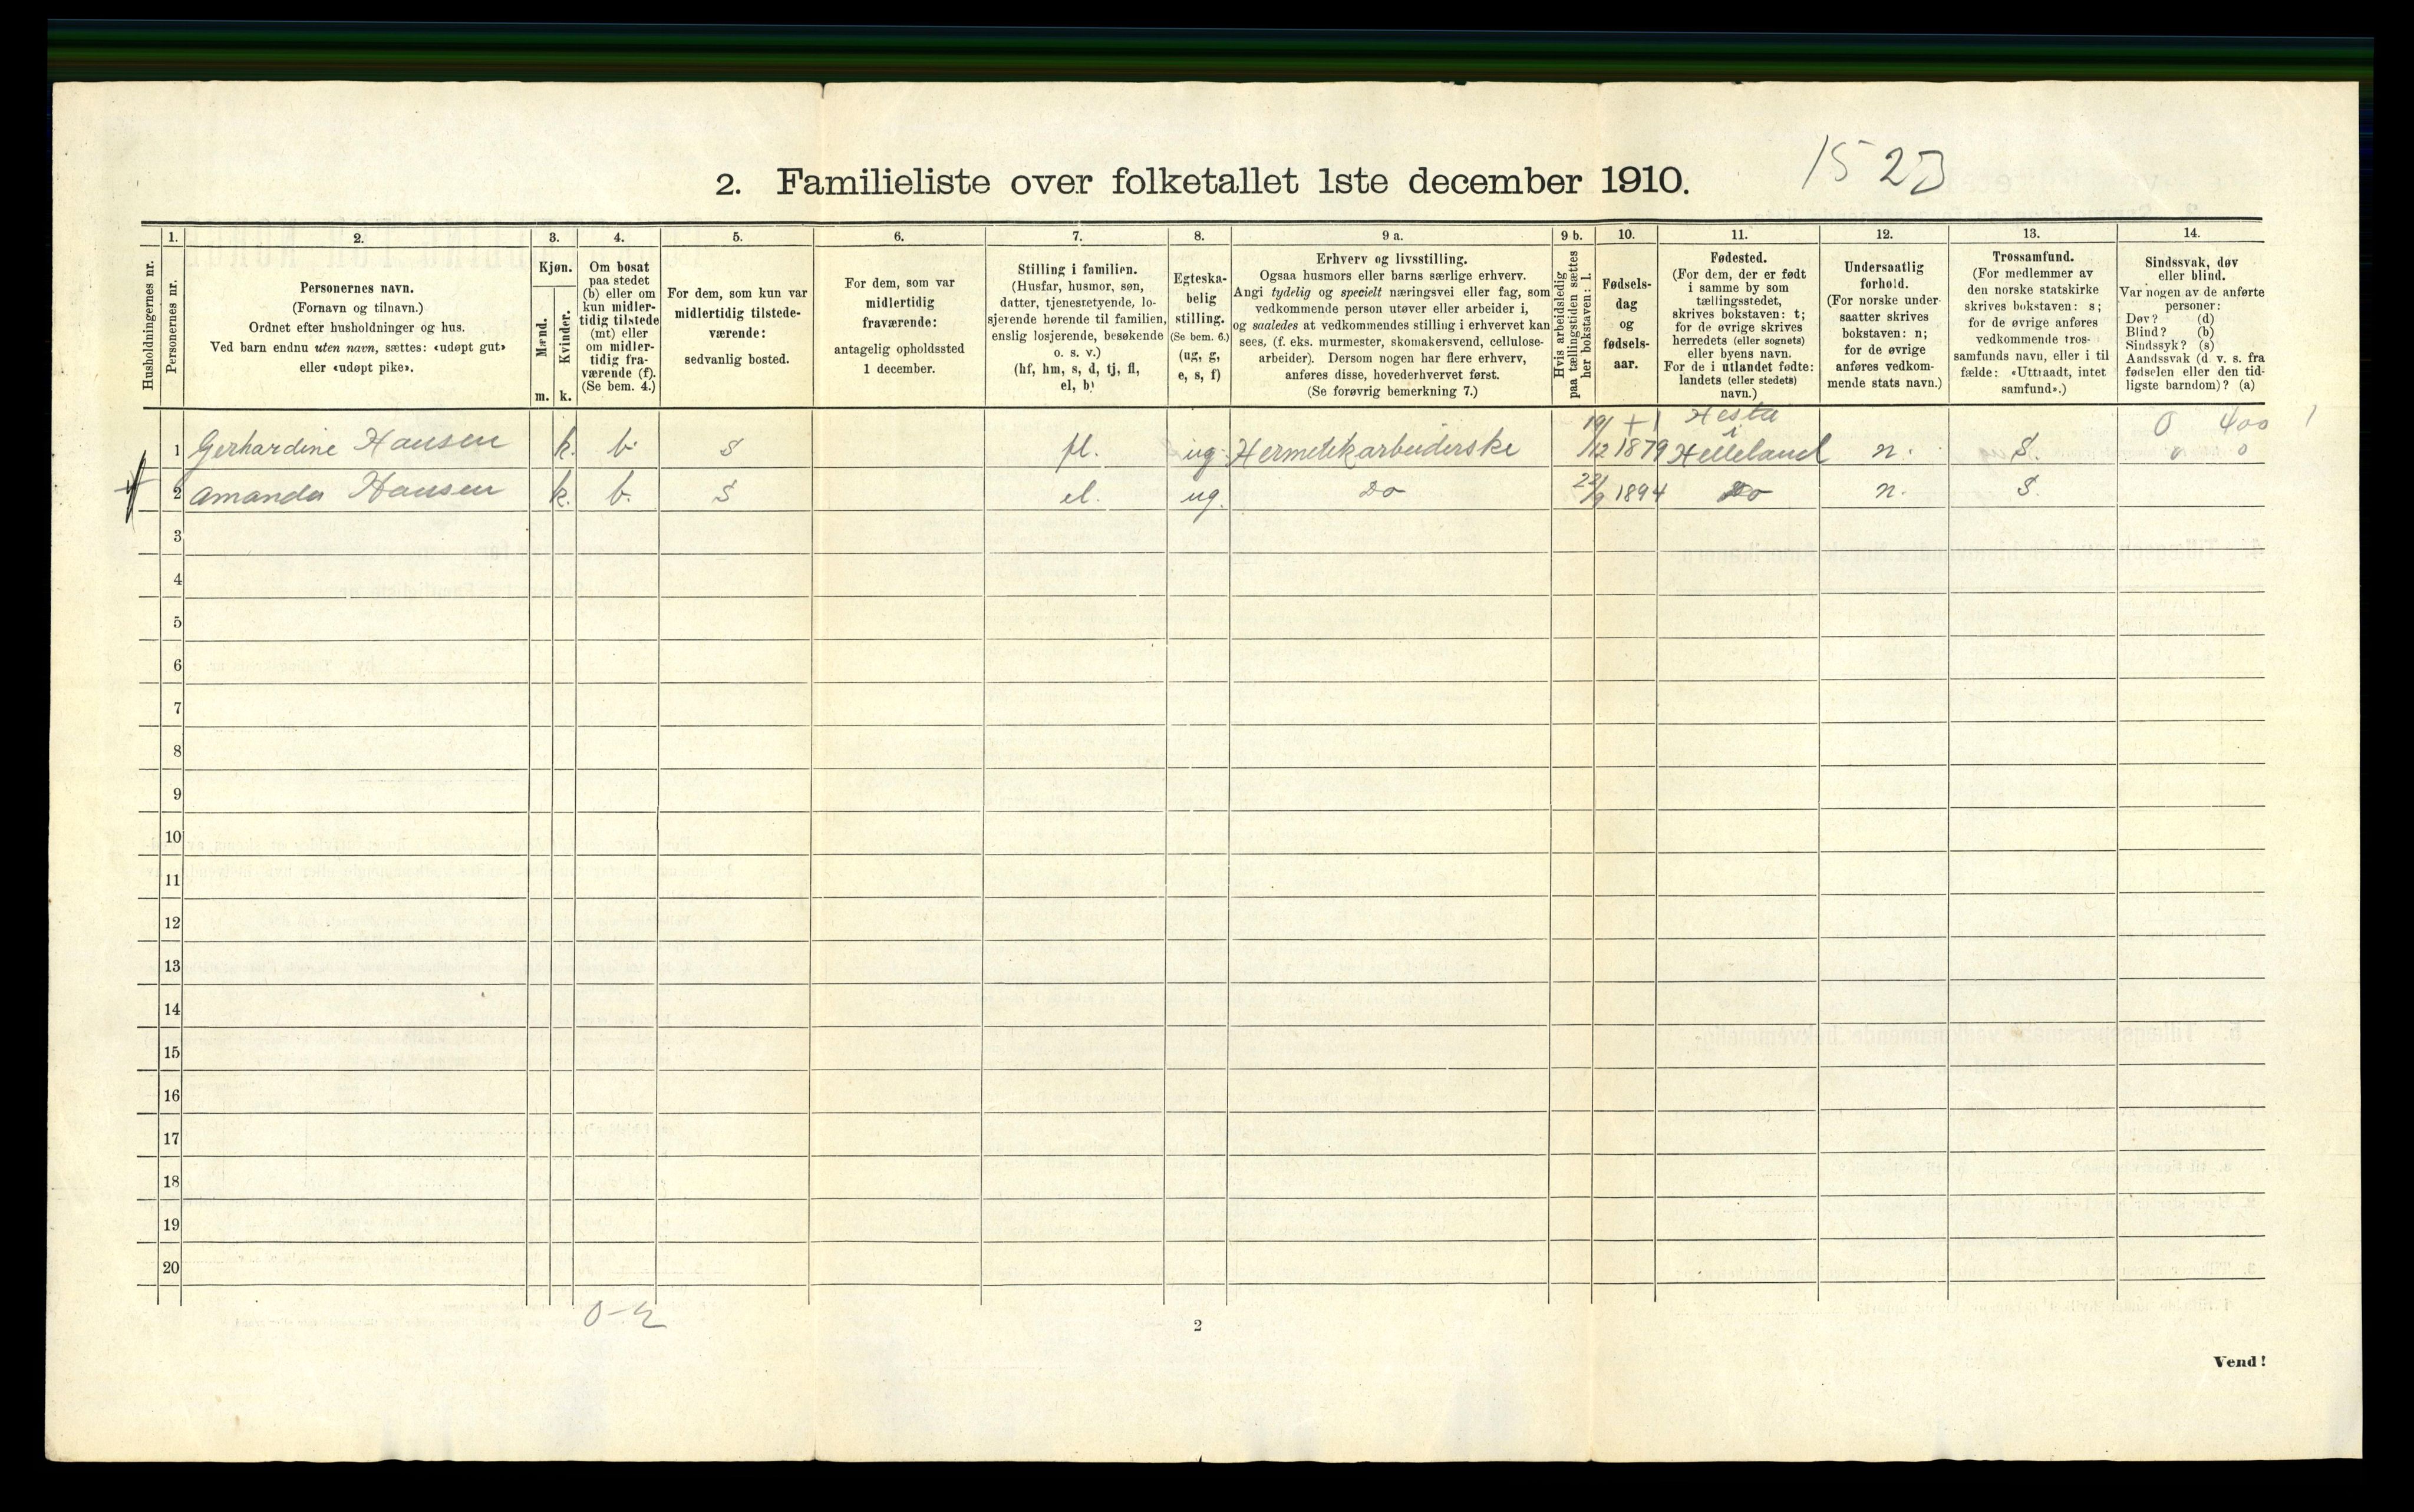 1523
2. Familieliste over folketallet 1ste december 1910.
Husholdningernes nr.
1.
Personernes nr.
2.
Personernes navn.
(Fornavn og tilnavn.)
Ordnet efter husholdninger og hus.
Ved barn endnu uten navn, sættes: «udøpt gut»
eller «udøpt pike».
3.
Kjøn.
Mænd.
Kvinder.
m. k.
4.
Om bosat
paa stedet
(b) eller om
kun midler-
tidig tilstede
(mt) eller
om midler-
tidig fra-
værende (f).
(Se bem. 4.)
5.
For dem, som kun var
midlertidig tilstede-
værende:
sedvanlig bosted.
6.
For dem, som var
midlertidig
fraværende:
antagelig opholdssted
1 december.
7.
Stilling i familien.
(Husfar, husmor, søn,
datter, tjenesretyende, lo-
sjerende hørende til familien,
enslig losjerende, besøkende
o. s. v.)
(hf, hm, s, d, tj, fl,
el, b)
8.
Egteska-
belig
stilling.
(Se bem. 6.)
(ug, g,
e, s, f)
9 a.
Erhverv og livsstilling.
Ogsaa husmors eller barns særlige erhverv.
Angi tydelig og specielt næringsvei eller fag, som
vedkommende person utøver eller arbeider i,
og saaledes at vedkommendes stilling i erhvervet kan
sees, (f. eks. murmester, skomakersvend, cellulose-
arbeider). Dersom nogen har flere erhverv,
anføres disse, hovederhvervet først.
(Se forøvrig bemerkning 7.)
9 b.
Hvis arbeidsledig
paa tællingstiden sættes
her bokstaven: l.
10.
Fødsels-
dag
og
fødsels-
aar.
11.
Fødested.
(For dem, der er født
i samme by som
tællingsstedet,
skrives bokstaven: t;
for de øvrige skrives
herredets (eller sognets)
eller byens navn.
For de i utlandet fødte:
landets (eller stedets)
navn.)
12.
Undersaatlig
forhold.
(For norske under-
saatter skrives
bokstaven: n;
for de øvrige
anføres vedkom-
mende stats navn.)
13.
Trossamfund.
(For medlemmer av
den norske statskirke
skrives bokstaven: s;
for de øvrige anføres
vedkommende tros-
samfunds navn, eller i til
fælde: «Uttraadt, intet
samfund».)
14.
Sindssvak, døv
eller blind.
Var nogen av de anførte
personer:
Døv? (d)
Blind? (b)
Sindssyk? (s)
Aandssvak (d. v. s. fra
fødselen eller den tid-
ligste barndom)? (a)
0 400 1
1 Gerhardine Hansen k. b. S fl. ug. Hermetikarbeiderske 19/12 1879 i Helleland n. S. 0 0
2 Amanda Hansen k. b. S el. ug. Do 22/9 1894 Do n. S.
3
4
5
6
7
8
9
10
11
12
13
14
15
16
17
18
19
20
0-2
2
Vend!